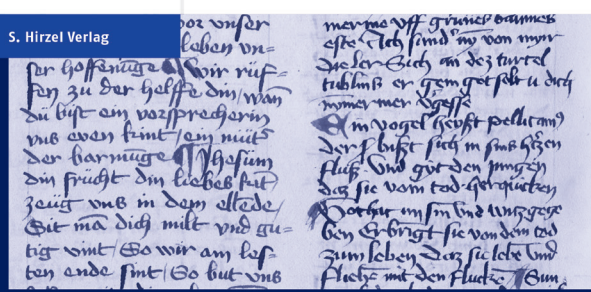 S. Hirzel Verlag
vor vnser
leben vn=
ser hoffenu̅ge wir rüf=
fen zu der helffe din / wan
du bist ein vorsprecherin
vns even kint / ein müt
der barmu̅ge Jhesum
din frücht din liebes kit
zeüg vns in dem ellede /
Sit ma dich milt vnd gu=
tig vint / So wir am les=
ten ende sint / So but vns
mer me vff grunes
este Ich sund myr
Sich an dez turtel
tublins er gem got selt u dich
nymer mer
Ein vogel heyst pellican
der bist sich in sins
fluß Vnd git den jungen
daz sie vom tod
Got hat vnd
ben Er bright sie von dem tod
zum leben daz sie lebe vnd
fliehe mit den